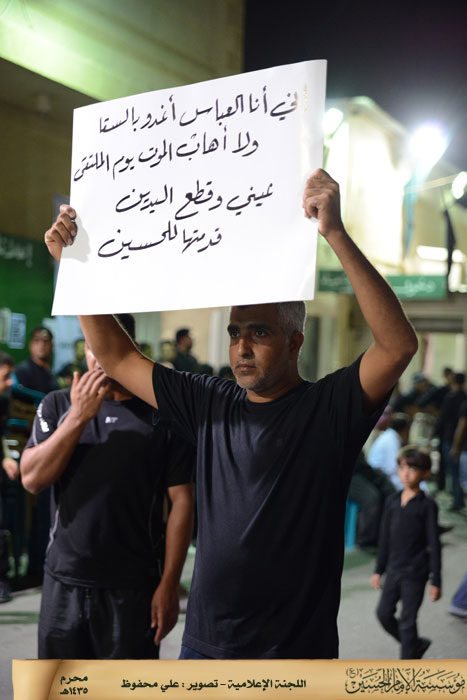 ني أنا العباس أغدو بالسقا
ولا أهاب الموت يوم الملتقى
عيني وقطع اليدين
قدمتها للحسين
مؤسسة الإمام الحسين
اللجنة الإعلامية - تصوير : علي محفوظ
محرم
١٤٣٥هـ